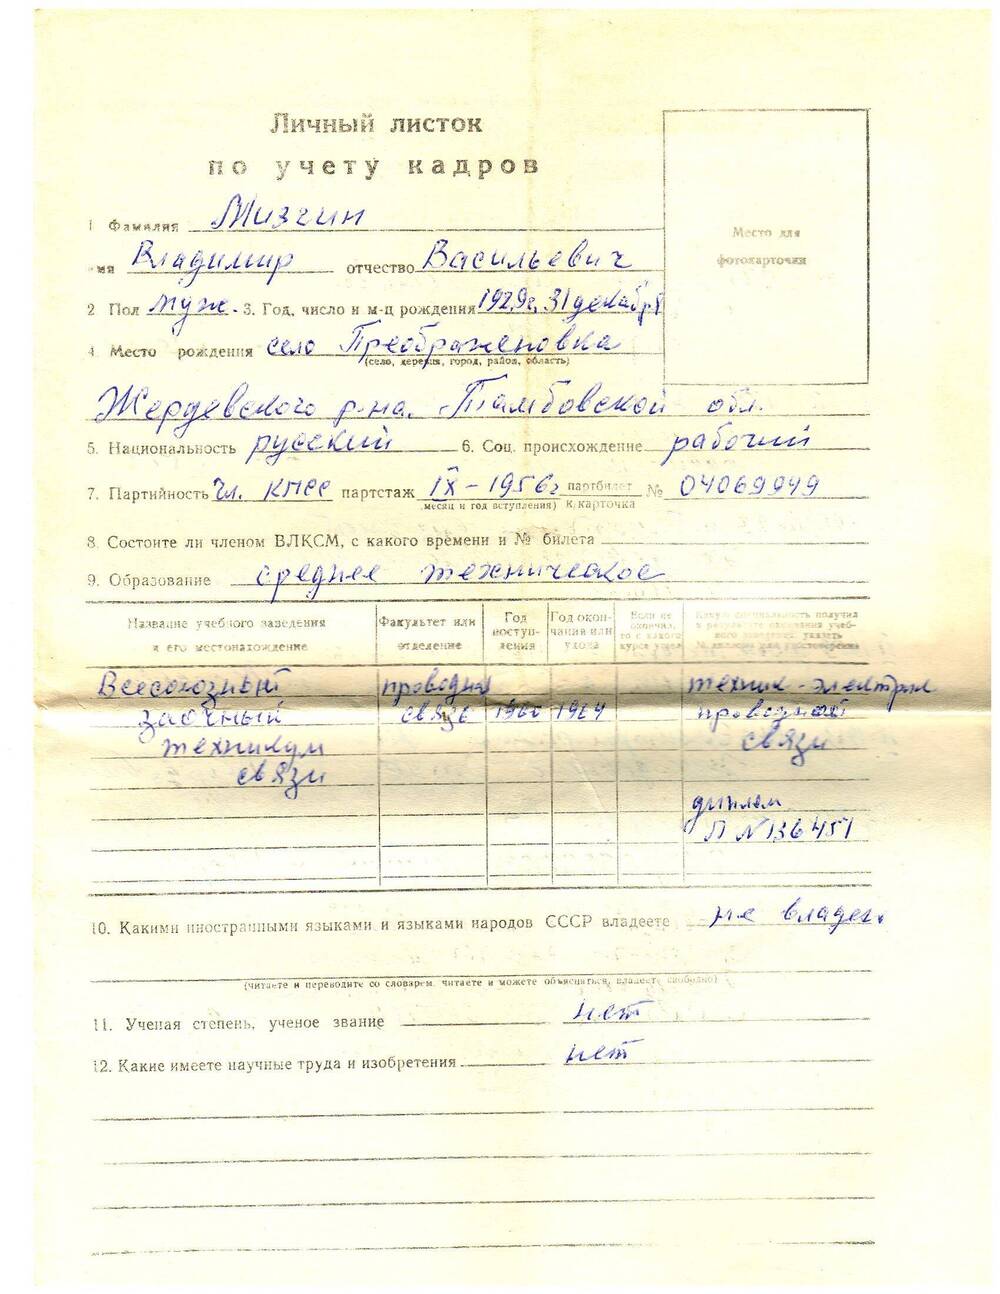 Личный листок
по учету кадров
Место для
фотокарточки
1 Фамилия Мизгин
имя Владимир отчество Васильевич
2 Пол муж. 3. Год, число и м-ц рождения 1929г. 31 декабря
4. Место рождения село Преображеновка
(село, деревня, город, район, область)
Жердевского р-на. Тамбовской обл.
5. Национальность русский 6. Соц. происхождение рабочий
7. Партийность Чл. КПСС партстаж IX – 1956г партбилет № 04069949
(месяц и год вступления) к/карточка
8. Состоите ли членом ВЛКСМ, с какого времени и № билета
9. Образование среднее техническое
Название учебного заведения и его местонахождение
Факультет или отделение
Год поступ-ления
Год окон-чания или ухода
Если не окончил, то с какого курса ушел
Какую специальность получил в результате окончания учеб-ного заведения, указать № диплома или удостоверения
Всесоюзный проводная техник-электрик
заочный связь 1960 1964 проводной
техникум связи
связи
диплом
Л №136451
10. Какими иностранными языками и языками народов СССР владеете не владею.
(читаете и переводите со словарем, читаете и можете объясняться, владеете свободно)
11. Ученая степень, ученое звание нет
12. Какие имеете научные труда и изобретения нет